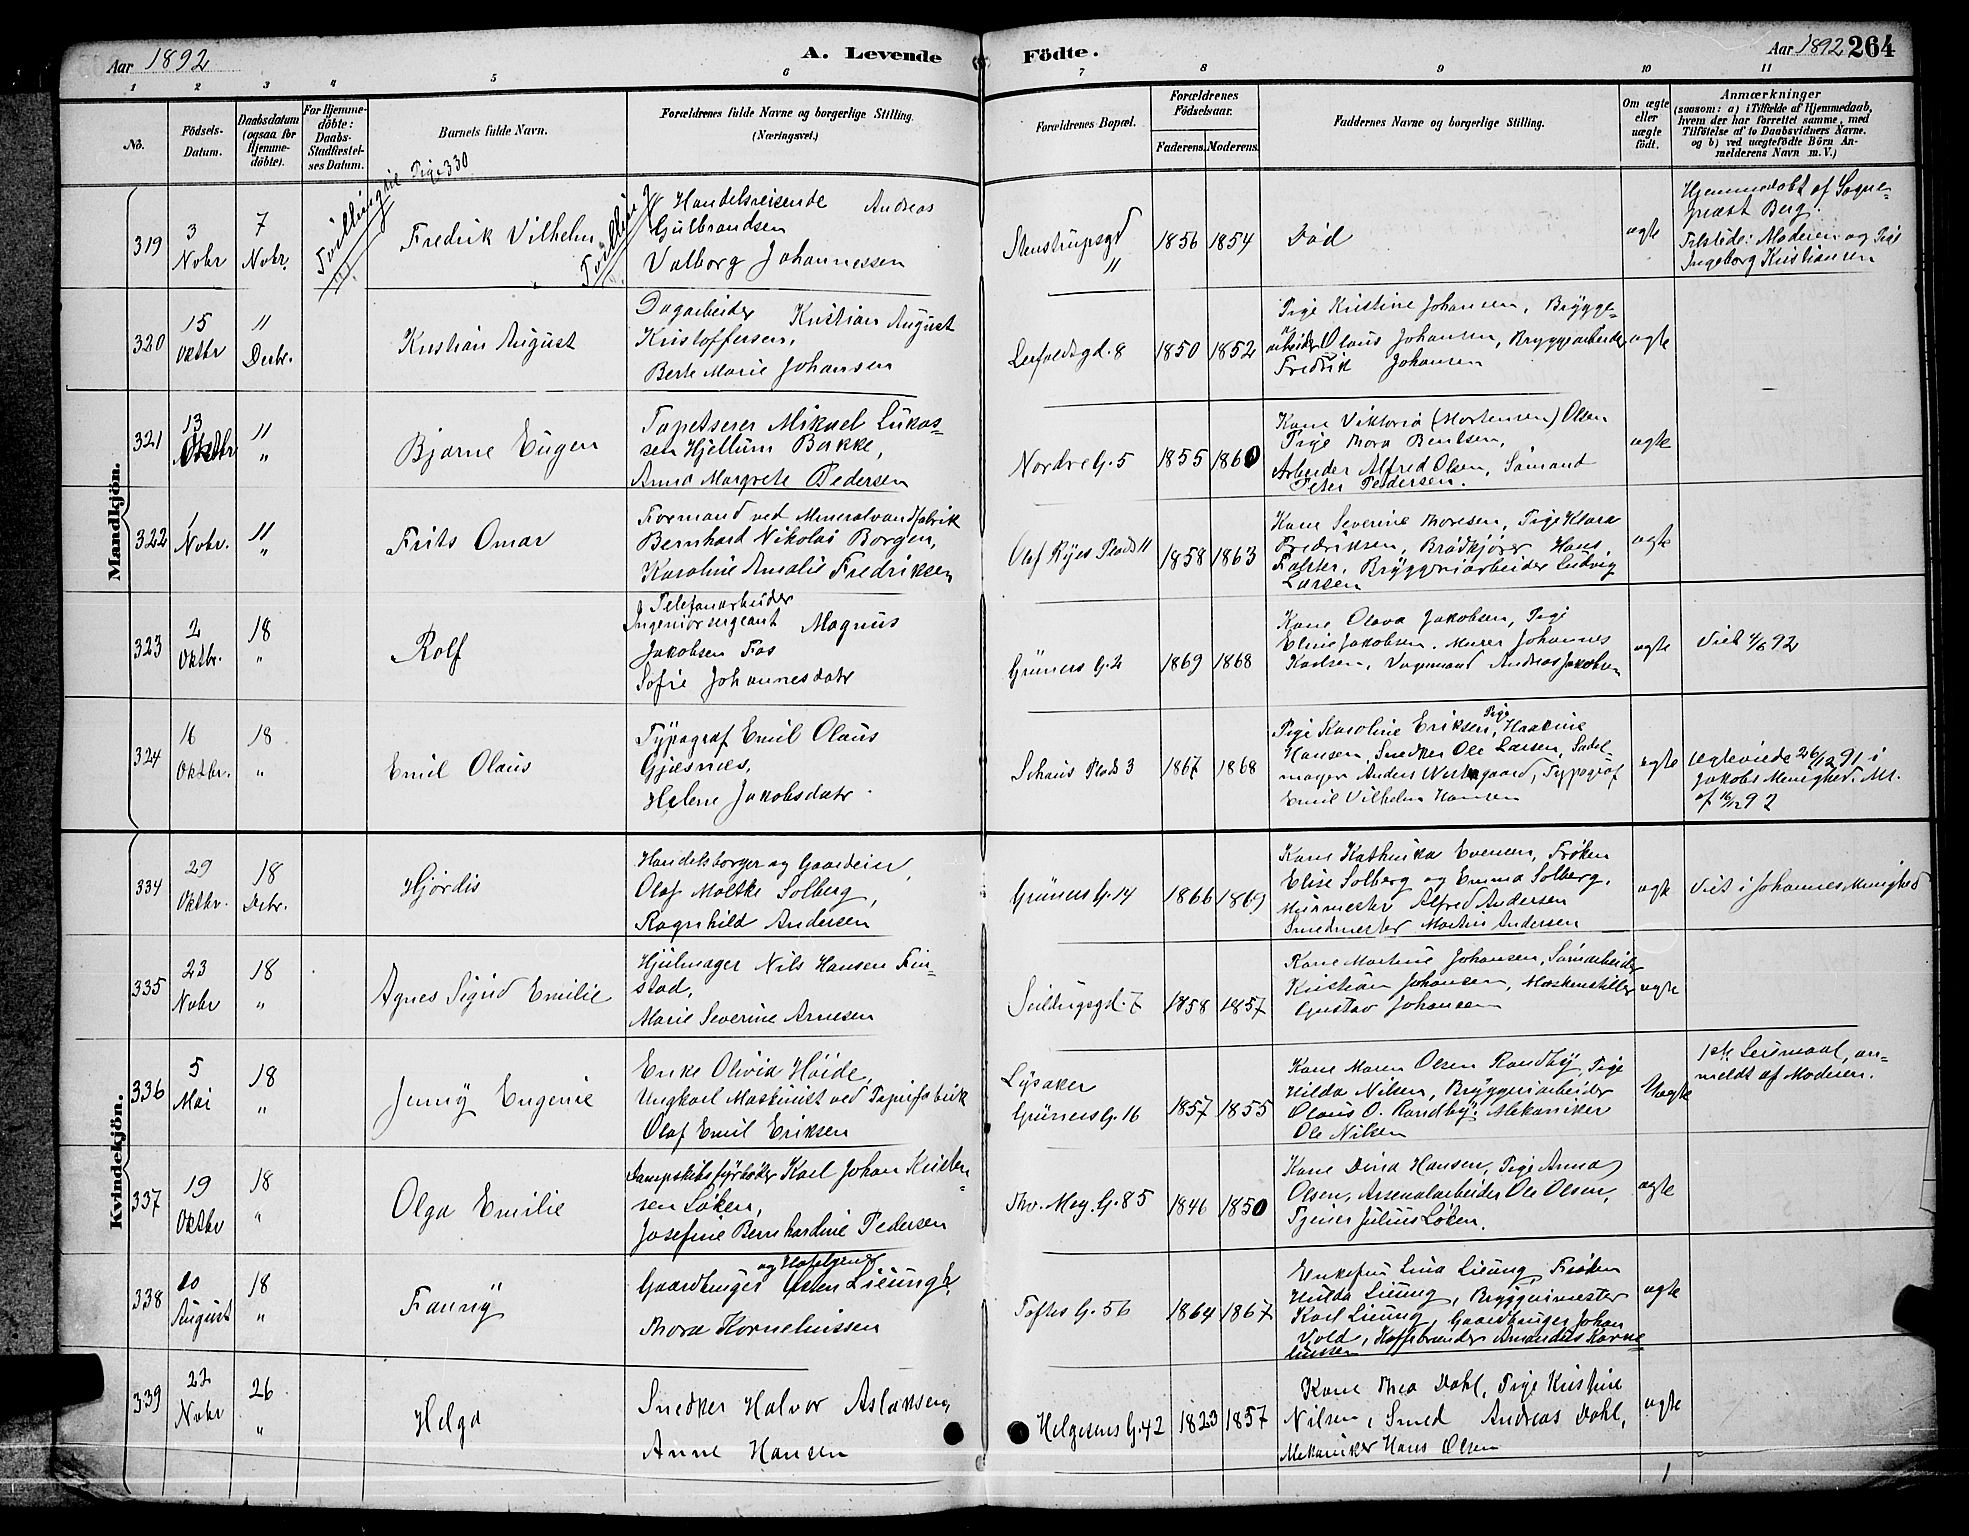 Aar 1892
A. Levende Födte.
Aar 1892 264
1 2 3 4 5 6 7 8 9 10 11
No.
Födsels-Datum.
Daabsdatum (ogsaa for Hjemmedöbte).
For Hjemmedöbte: Daabs-Stadfæstelses Datum.
Barnets fulde Navn.
Forældrenes fulde Navne og borgerlige Stilling. (Næringsvei.)
Forældrenes Bopæl.
Forældrenes Födselsaar.
Faderens. Moderens.
Faddernes Navne og borgerlige Stilling.
Om ægte eller uægte födt.
Anmærkninger
(saasom: a) i Tilfælde af Hjemmedaab,
hvem der har forrettet samme, med
Tilföielse af to Daabsvidners Navne.
og b) ved uægtefödte Börn An-
melderens Navn m. V.)
Mandkjön.
319
3 Novbr
7 Novbr.
Tvilling til Pige 330
Fredrik Vilhelm
Tvilling
Handelsreisende Andreas
Gulbrandsen
Valborg Johannessen
Stenstrupsgd 11
1856 1854
Död
ægte
Hjemmedøbt af Sogne-
præst Berg.
Tilstede: Moderen og Pige
Ingeborg Kristiansen
320
15 Oktbr
11 Decbr.
Kristian August
Dagarbeider Kristian August
Kristoffersen,
Berte Marie Johansen
Leirfaldsgd. 8
1850 1852
Pige Kristine Johansen, Brygge-
arbeider Olaus Johansen, Bryggearbeider
Fredrik Johansen
ægte
321
13 Oktbr
11 "
Bjarne Eugen
Tapetserer Mikael Lukas-
sen Hjellum Bakke,
Anna Margrete Pedersen
Nordre G. 5
1855 1860
Kone Viktoria (Mortensen) Olsen
Pige Thora Bentsen,
Arbeider Alfred Olsen, Sømand
Peter Pedersen.
ægte
322
1 Novbr.
11 "
Frits Omar
Formand ved Mineralvandfabrik
Bernhard Nikolai Borgen,
Karoline Amalie Fredriksen
Olaf Ryes Plads 11
1858 1863
Kone Severine Thoresen, Pige Klara
Fredriksen, Brødkjører Hans
Falster, Bryggeriarbeider Ludvig
Larsen
ægte
323
2 Oktbr.
18 "
Rolf
Telefonarbeider
Ingeniørsergeant Magnus
Jakobsen Fos
Sofie Johannesdatr
Grüners G. 2
1869 1868
Kone Olava Jakobsen, Pige
Eline Jakobsen. Murer Johannes
Karlsen, Vognmand Andreas Jakobsen
ægte
Viet 4/6 92
324
16 Oktbr.
18 "
Emil Olaus
Typograf Emil Olaus
Gjæsnes,
Helene Jakobsdatr.
Schous Plads 3
1867 1868
Pige Karoline Eriksen, Pige Haakine
Hansen, Snedker Ole Larsen, Sadel-
mager Anders Vestgaard, Typograf
Emil Vilhelm Hansen
ægte
Ægteviede 26/12 91 i
Jakobs Menighed. At.
af 16/12 92
Kvindekjön.
334
29 Oktbr.
18 Debr.
Hjördis
Handelsborger og Gaardeier,
Olaf Moltke Solberg,
Ragnhild Andersen
Grüners G. 14
1866 1869
Kone Kathinka Evensen, Frøken
Elise Solberg og Emma Solberg,
Murmester Alfred Andersen
Smedmester Martin Andersen
ægte
Viet i Johannes Menighed
335
23 Novbr
18 "
Agnes Sigrid Emilie
Hjulmager Nils Hansen Fin-
stad,
Marie Severine Arnesen
Seildugsgd. 7
1858 1857
Kone Martine Johansen,
Kristian Johansen, Maskinstiller
Gustav Johansen
ægte
336
5 Mai
18 "
Jenny Eugenie
Enke Olivia Höide,
Ungkarl Maskinist ved Papirfabrik
Olaf Emil Eriksen
Lysaker
Grüners G. 16
1857 1855
Kone Maren Olsen Randby, Pige
Hilda Nilsen, Bryggeriarbeider
Olaus O. Randby. Mekaniker
Ole Nilsen
Uægte
1ste Leiermaal, an-
meldt af Moderen.
337
19 Oktbr
18 "
Olga Emilie
Dampskibsfyrbøder Karl Johan Kristen-
sen Løken,
Josefine Bernhardine Pedersen
Thv. Mey. G. 85
1846 1850
Kone Dina Hansen, Pige Anna
Olsen, Arsenalarbeider Ole Olsen,
Tjener Julius Løken.
ægte
338
20 August
18 "
Fanny
Gaardbruger Osten Lieungh,
Thora Korneliussen
Toftes G. 56
1864 1867
Enkefru Lina Lieung, Frøken
Hilda Lieung, Bryggerimester
Karl Lieung, Gaardbruger Johan
Vold, Kaffebrænder Amandus Korne-
liussen
ægte
339
22 Novbr
26 "
Helga
Snedker Halvor Aslaksen,
Anne Hansen
Helgesens G. 42
1823 1857
Kone Thea Dahl, Pige Kristine
Nilsen, Smed Andreas Dahl,
Mekaniker Hans Olsen
ægte
1